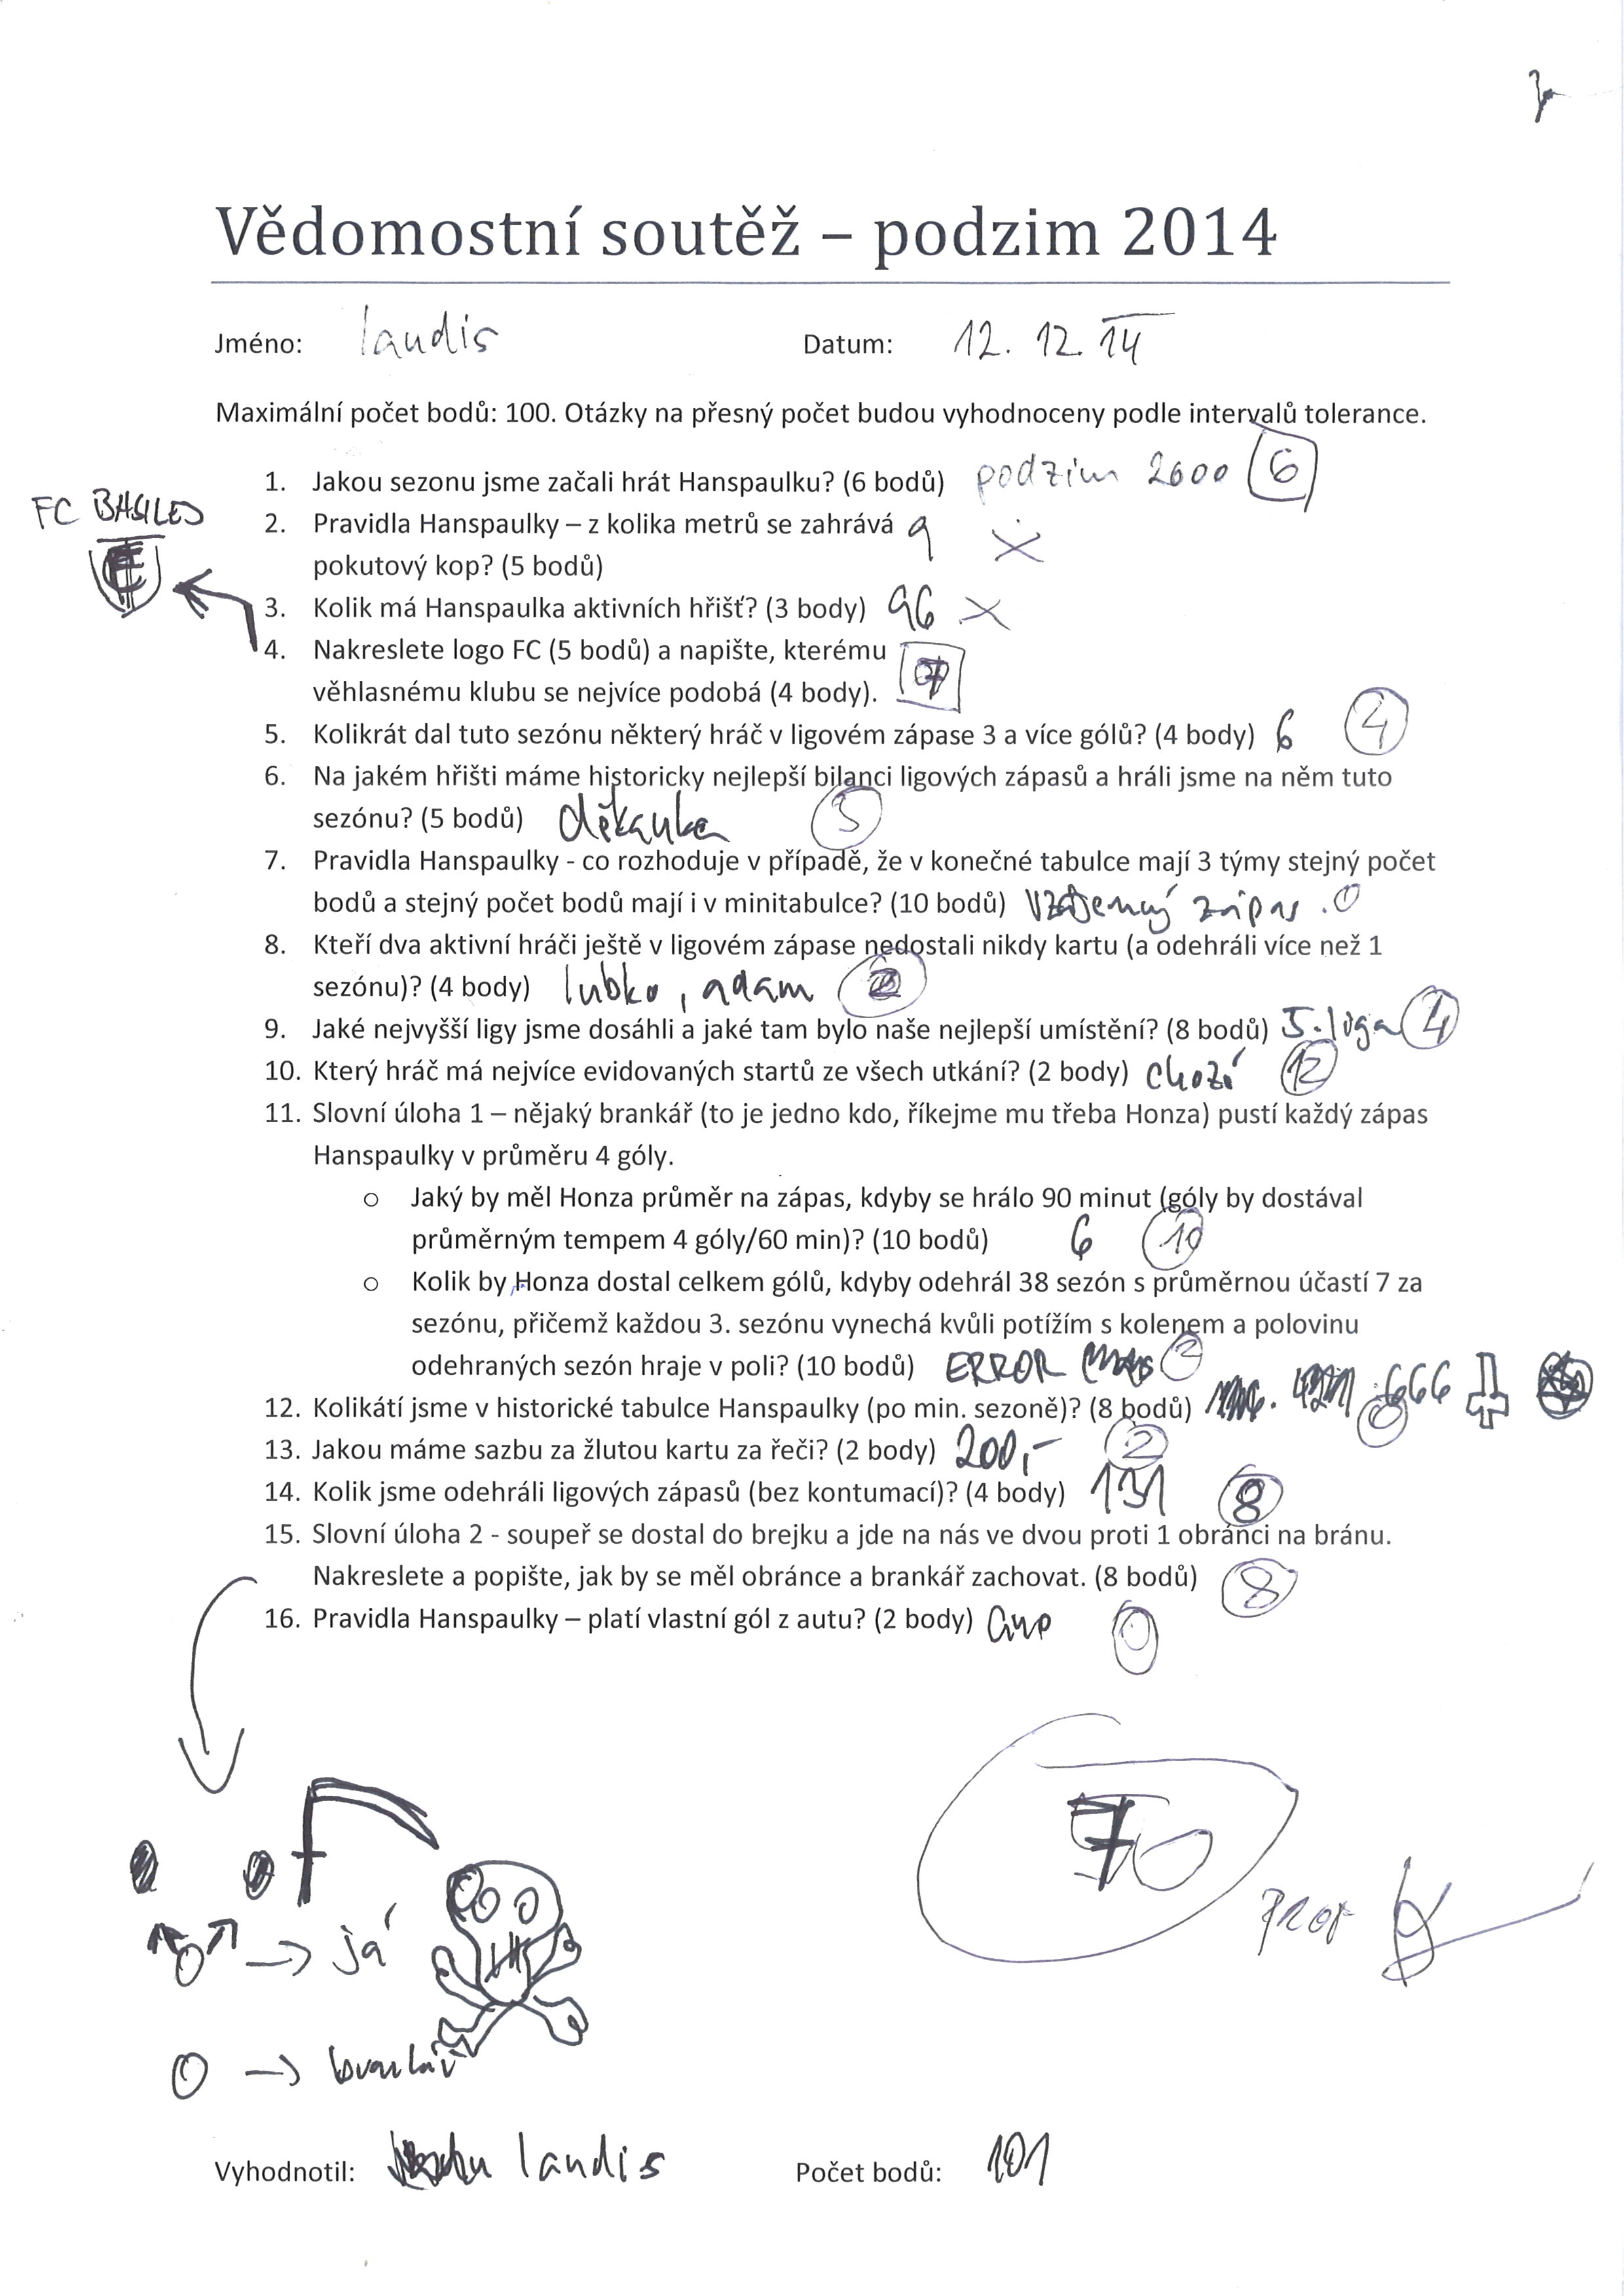 Vědomostní soutěž – podzim 2014
Jméno: landis Datum: 12. 12. 14
Maximální počet bodů: 100. Otázky na přesný počet budou vyhodnoceny podle intervalů tolerance.
1. Jakou sezonu jsme začali hrát Hanspaulku? (6 bodů) podzim 2000 6
FC BASILED
2. Pravidla Hanspaulky – z kolika metrů se zahrává 9
pokutový kop? (5 bodů)
3. Kolik má Hanspaulka aktivních hřišť? (3 body) 96
4. Nakreslete logo FC (5 bodů) a napište, kterému
věhlasnému klubu se nejvíce podobá (4 body).
5. Kolikrát dal tuto sezónu některý hráč v ligovém zápase 3 a více gólů? (4 body) 6 4
6. Na jakém hřišti máme historicky nejlepší bilanci ligových zápasů a hráli jsme na něm tuto
sezónu? (5 bodů) děkanka 5
7. Pravidla Hanspaulky - co rozhoduje v případě, že v konečné tabulce mají 3 týmy stejný počet
bodů a stejný počet bodů mají i v minitabulce? (10 bodů) Vzájemný zápas . 0
8. Kteří dva aktivní hráči ještě v ligovém zápase nedostali nikdy kartu (a odehráli více než 1
sezónu)? (4 body) lubko, adam
9. Jaké nejvyšší ligy jsme dosáhli a jaké tam bylo naše nejlepší umístění? (8 bodů) 5. liga 4
10. Který hráč má nejvíce evidovaných startů ze všech utkání? (2 body) chozé 12
11. Slovní úloha 1 – nějaký brankář (to je jedno kdo, říkejme mu třeba Honza) pustí každý zápas
Hanspaulky v průměru 4 góly.
o Jaký by měl Honza průměr na zápas, kdyby se hrálo 90 minut (góly by dostával
průměrným tempem 4 góly/60 min)? (10 bodů) 6 10
o Kolik by Honza dostal celkem gólů, kdyby odehrál 38 sezón s průměrnou účastí 7 za
sezónu, přičemž každou 3. sezónu vynechá kvůli potížím s kolenem a polovinu
odehraných sezón hraje v poli? (10 bodů) ERROR 2
12. Kolikátí jsme v historické tabulce Hanspaulky (po min. sezoně)? (8 bodů) 666 0
13. Jakou máme sazbu za žlutou kartu za řeči? (2 body) 200,- 2
14. Kolik jsme odehráli ligových zápasů (bez kontumací)? (4 body) 131 8
15. Slovní úloha 2 - soupeř se dostal do brejku a jde na nás ve dvou proti 1 obránci na bránu.
Nakreslete a popište, jak by se měl obránce a brankář zachovat. (8 bodů) 8
16. Pravidla Hanspaulky – platí vlastní gól z autu? (2 body) ano 0
70
Prof
já
brankář
Vyhodnotil: landis Počet bodů: 101